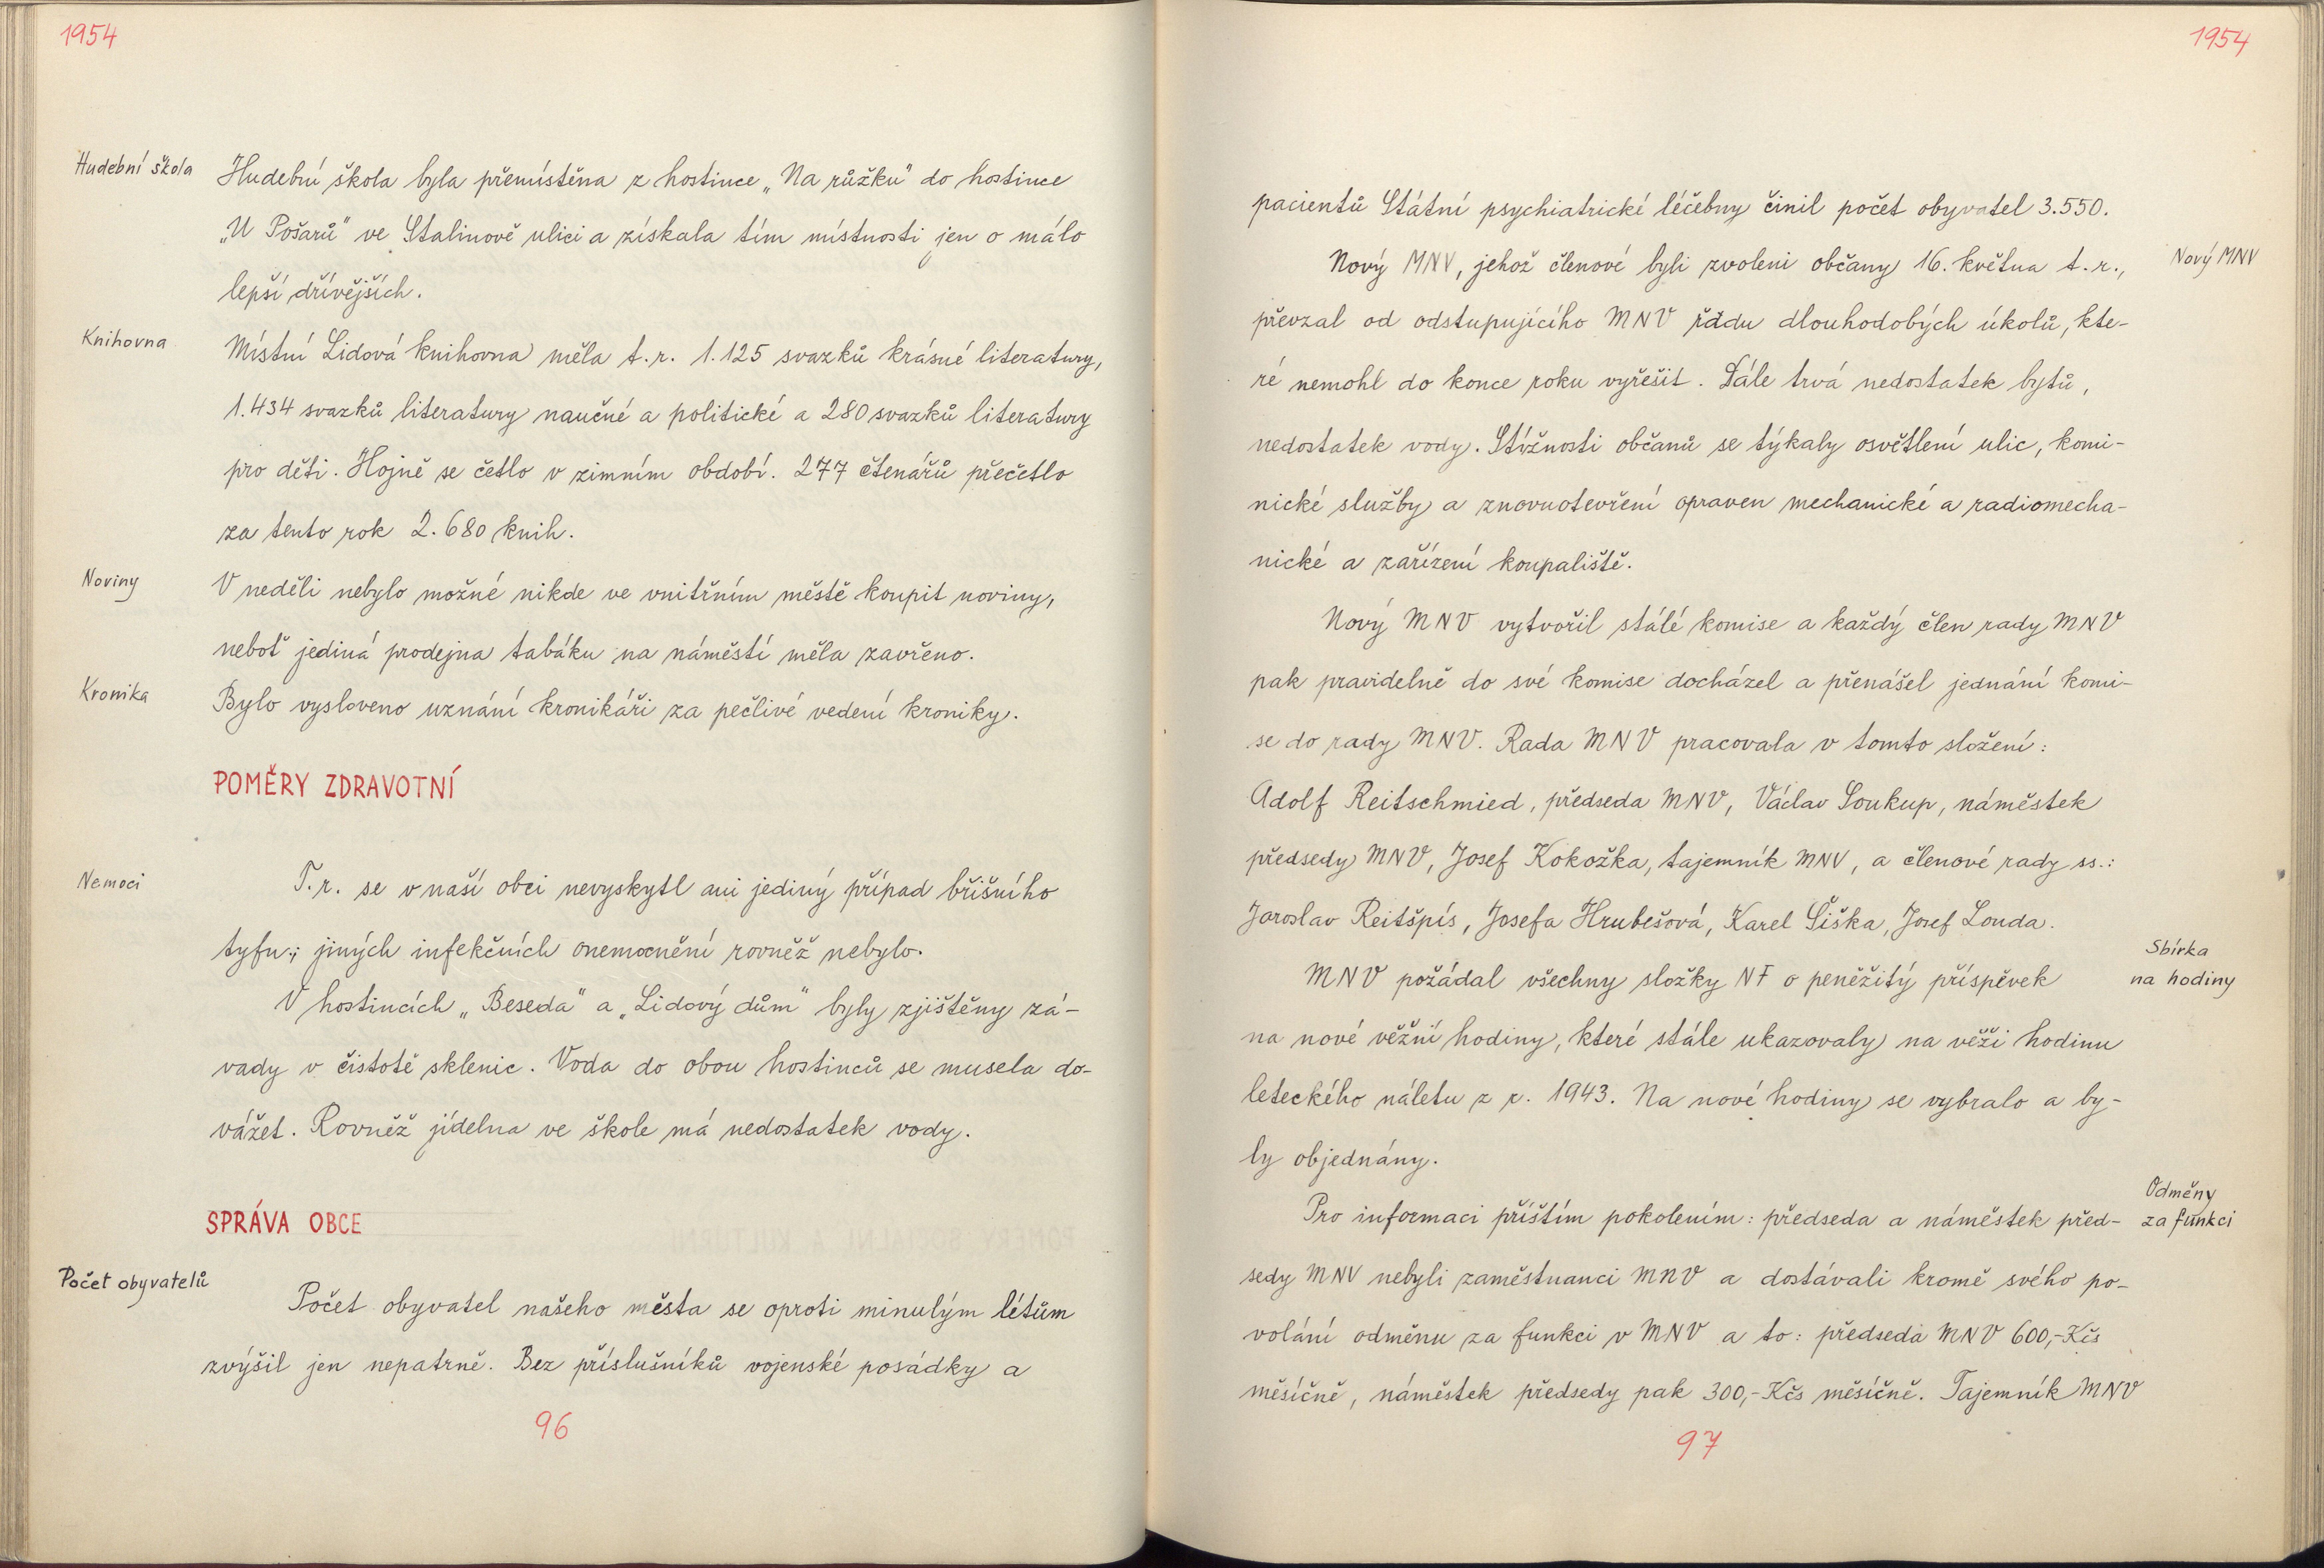 1954
Hudební škola
Hudební škola byla přemístěna z hostince „Na růžku" do hostince
„U Pošarů" ve Stalinově ulici a získala tím místnosti jen o málo
lepší dřívějších.
Knihovna
Místní Lidová knihovna měla t.r. 1.125 svazků krásné literatury,
1.434 svazků literatury naučné a politické a 280 svazků literatury
pro děti. Hojně se četlo v zimním období. 277 čtenářů přečetlo
za tento rok 2.680 knih.
Noviny
V neděli nebylo možné nikde ve vnitřním městě koupit noviny,
neboť jediná prodejna tabáku na náměstí měla zavřeno.
Kronika
Bylo vysloveno uznání kronikáři za pečlivé vedení kroniky.
POMĚRY ZDRAVOTNÍ
Nemoci
T.r. se v naší obci nevyskytl ani jediný případ břišního
tyfu; jiných infekčních onemocnění rovněž nebylo.
V hostincích „Beseda" a „Lidový dům" byly zjištěny zá-
vady v čistotě sklenic. Voda do obou hostinců se musela do-
vážet. Rovněž jídelna ve škole má nedostatek vody.
SPRÁVA OBCE
Počet obyvatelů
Počet obyvatel našeho města se oproti minulým létům
zvýšil jen nepatrně. Bez příslušníků vojenské posádky a
96
1954
pacientů Státní psychiatrické léčebny činil počet obyvatel 3.550.
Nový MNV, jehož členové byli zvoleni občany 16. května t.r.,
Nový MNV
převzal od odstupujícího MNV řadu dlouhodobých úkolů, kte-
ré nemohl do konce roku vyřešit. Dále trvá nedostatek bytů,
nedostatek vody. Stížnosti občanů se týkaly osvětlení ulic, komi-
nické služby a znovuotevření opraven mechanické a radiomecha-
nické a zařízení koupaliště.
Nový MNV vytvořil stálé komise a každý člen rady MNV
pak pravidelně do své komise docházel a přenášel jednání komi-
se do rady MNV. Rada MNV pracovala v tomto složení:
Adolf Reitschmied, předseda MNV, Václav Soukup, náměstek
předsedy MNV, Josef Kokožka, tajemník MNV, a členové rady ss.:
Jaroslav Reitšpís, Josefa Hrubešová, Karel Šiška, Josef Louda.
Sbírka
na hodiny
MNV požádal všechny složky NF o peněžitý příspěvek
na nové věžní hodiny, které stále ukazovaly na věži hodinu
leteckého náletu z r. 1943. Na nové hodiny se vybralo a by-
ly objednány.
Odměny
za funkci
Pro informaci příštím pokolením: předseda a náměstek před-
sedy MNV nebyli zaměstnanci MNV a dostávali kromě svého po-
volání odměnu za funkci v MNV a to: předseda MNV 600,-Kčs
měsíčně, náměstek předsedy pak 300,-Kčs měsíčně. Tajemník MNV
97